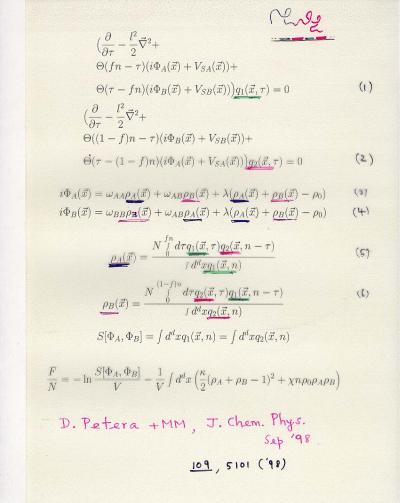 (∂/∂τ − l²/2 ∇⃗²+
Θ(fn − τ)(iΦ_A(x⃗) + V_SA(x⃗))+
Θ(τ − fn)(iΦ_B(x⃗) + V_SB(x⃗)))q₁(x⃗,τ) = 0 (1)
(∂/∂τ − l²/2 ∇⃗²+
Θ((1 − f)n − τ)(iΦ_B(x⃗) + V_SB(x⃗))+
Θ(τ − (1 − f)n)(iΦ_A(x⃗) + V_SA(x⃗)))q₂(x⃗,τ) = 0 (2)
iΦ_A(x⃗) = ω_AA ρ_A(x⃗) + ω_AB ρ_B(x⃗) + λ(ρ_A(x⃗) + ρ_B(x⃗) − ρ₀) (3)
iΦ_B(x⃗) = ω_BB ρ_B(x⃗) + ω_AB ρ_A(x⃗) + λ(ρ_A(x⃗) + ρ_B(x⃗) − ρ₀) (4)
ρ_A(x⃗) = N ∫₀^{fn} dτ q₁(x⃗,τ)q₂(x⃗, n − τ) / ∫ d^d x q₁(x⃗, n) (5)
ρ_B(x⃗) = N ∫₀^{(1−f)n} dτ q₂(x⃗,τ)q₁(x⃗, n − τ) / ∫ d^d x q₂(x⃗, n) (6)
S[Φ_A, Φ_B] = ∫ d^d x q₁(x⃗, n) = ∫ d^d x q₂(x⃗, n)
F/N = − ln S[Φ_A, Φ_B]/V − 1/V ∫ d^d x (κ/2 (ρ_A + ρ_B − 1)² + χnρ₀ρ_Aρ_B)
D. Petera + MM, J. Chem. Phys.
Sep '98
109, 5101 ('98)